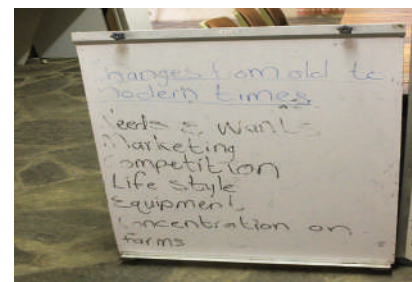 Changes from old to
modern times
Needs & Wants
Marketing
Competition
Life Style
Equipment
Concentration on
farms